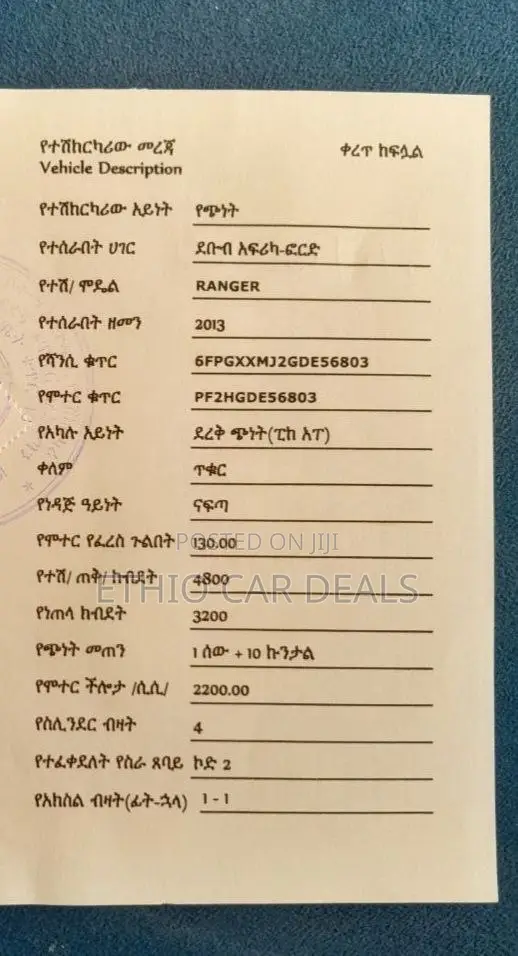 የተሽከርካሪው መረጃ ቀረጥ ከፍሏል
Vehicle Description
የተሽከርካሪው አይነት የጭነት
የተሰራበት ሀገር ደቡብ አፍሪካ-ፎርድ
የተሽ/ ሞዴል RANGER
የተሰራበት ዘመን 2013
የሻንሲ ቁጥር 6FPGXXMJ2GDE56803
የሞተር ቁጥር PF2HGDE56803
የአካሉ አይነት ደረቅ ጭነት(ፒክ አፕ)
ቀለም ጥቁር
የነዳጅ ዓይነት ናፍጣ
የሞተር የፈረስ ጉልበት 130.00
POSTED ON JIJI
የተሽ/ ጠቅ/ ክብደት 4800
ETHIO CAR DEALS
የነጠላ ክብደት 3200
የጭነት መጠን 1 ሰው + 10 ኩንታል
የሞተር ችሎታ /ሲሲ/ 2200.00
የስሊንደር ብዛት 4
የተፈቀደለት የስራ ጸባይ ኮድ 2
የአክስል ብዛት(ፊት-ኋላ) 1 - 1